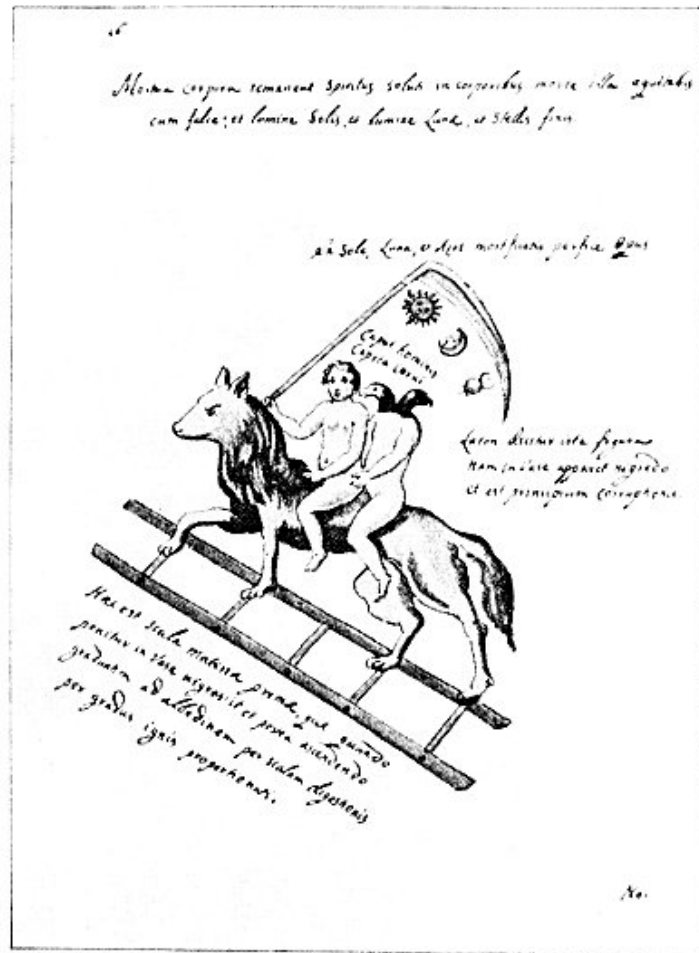 26
Mortua corpora remanent Spiritus soluti in corporibus morte illa equitabis
cum and et lumine Solis, et lumine Lunæ, et Stellis finis.
Sole, Luna, et mortificatis perfice Opus
Caput hominis
Capita corvi
Laton dicitur ista figura
nam in Vase apparet nigredo
et est principium corruptionis.
Hæc est scala materia prima, quæ quando
ponitur in Vase nigrescit et postea ascendendo
gradatim ad albedinem per scalam digestionis
per gradus ignis proportionati.